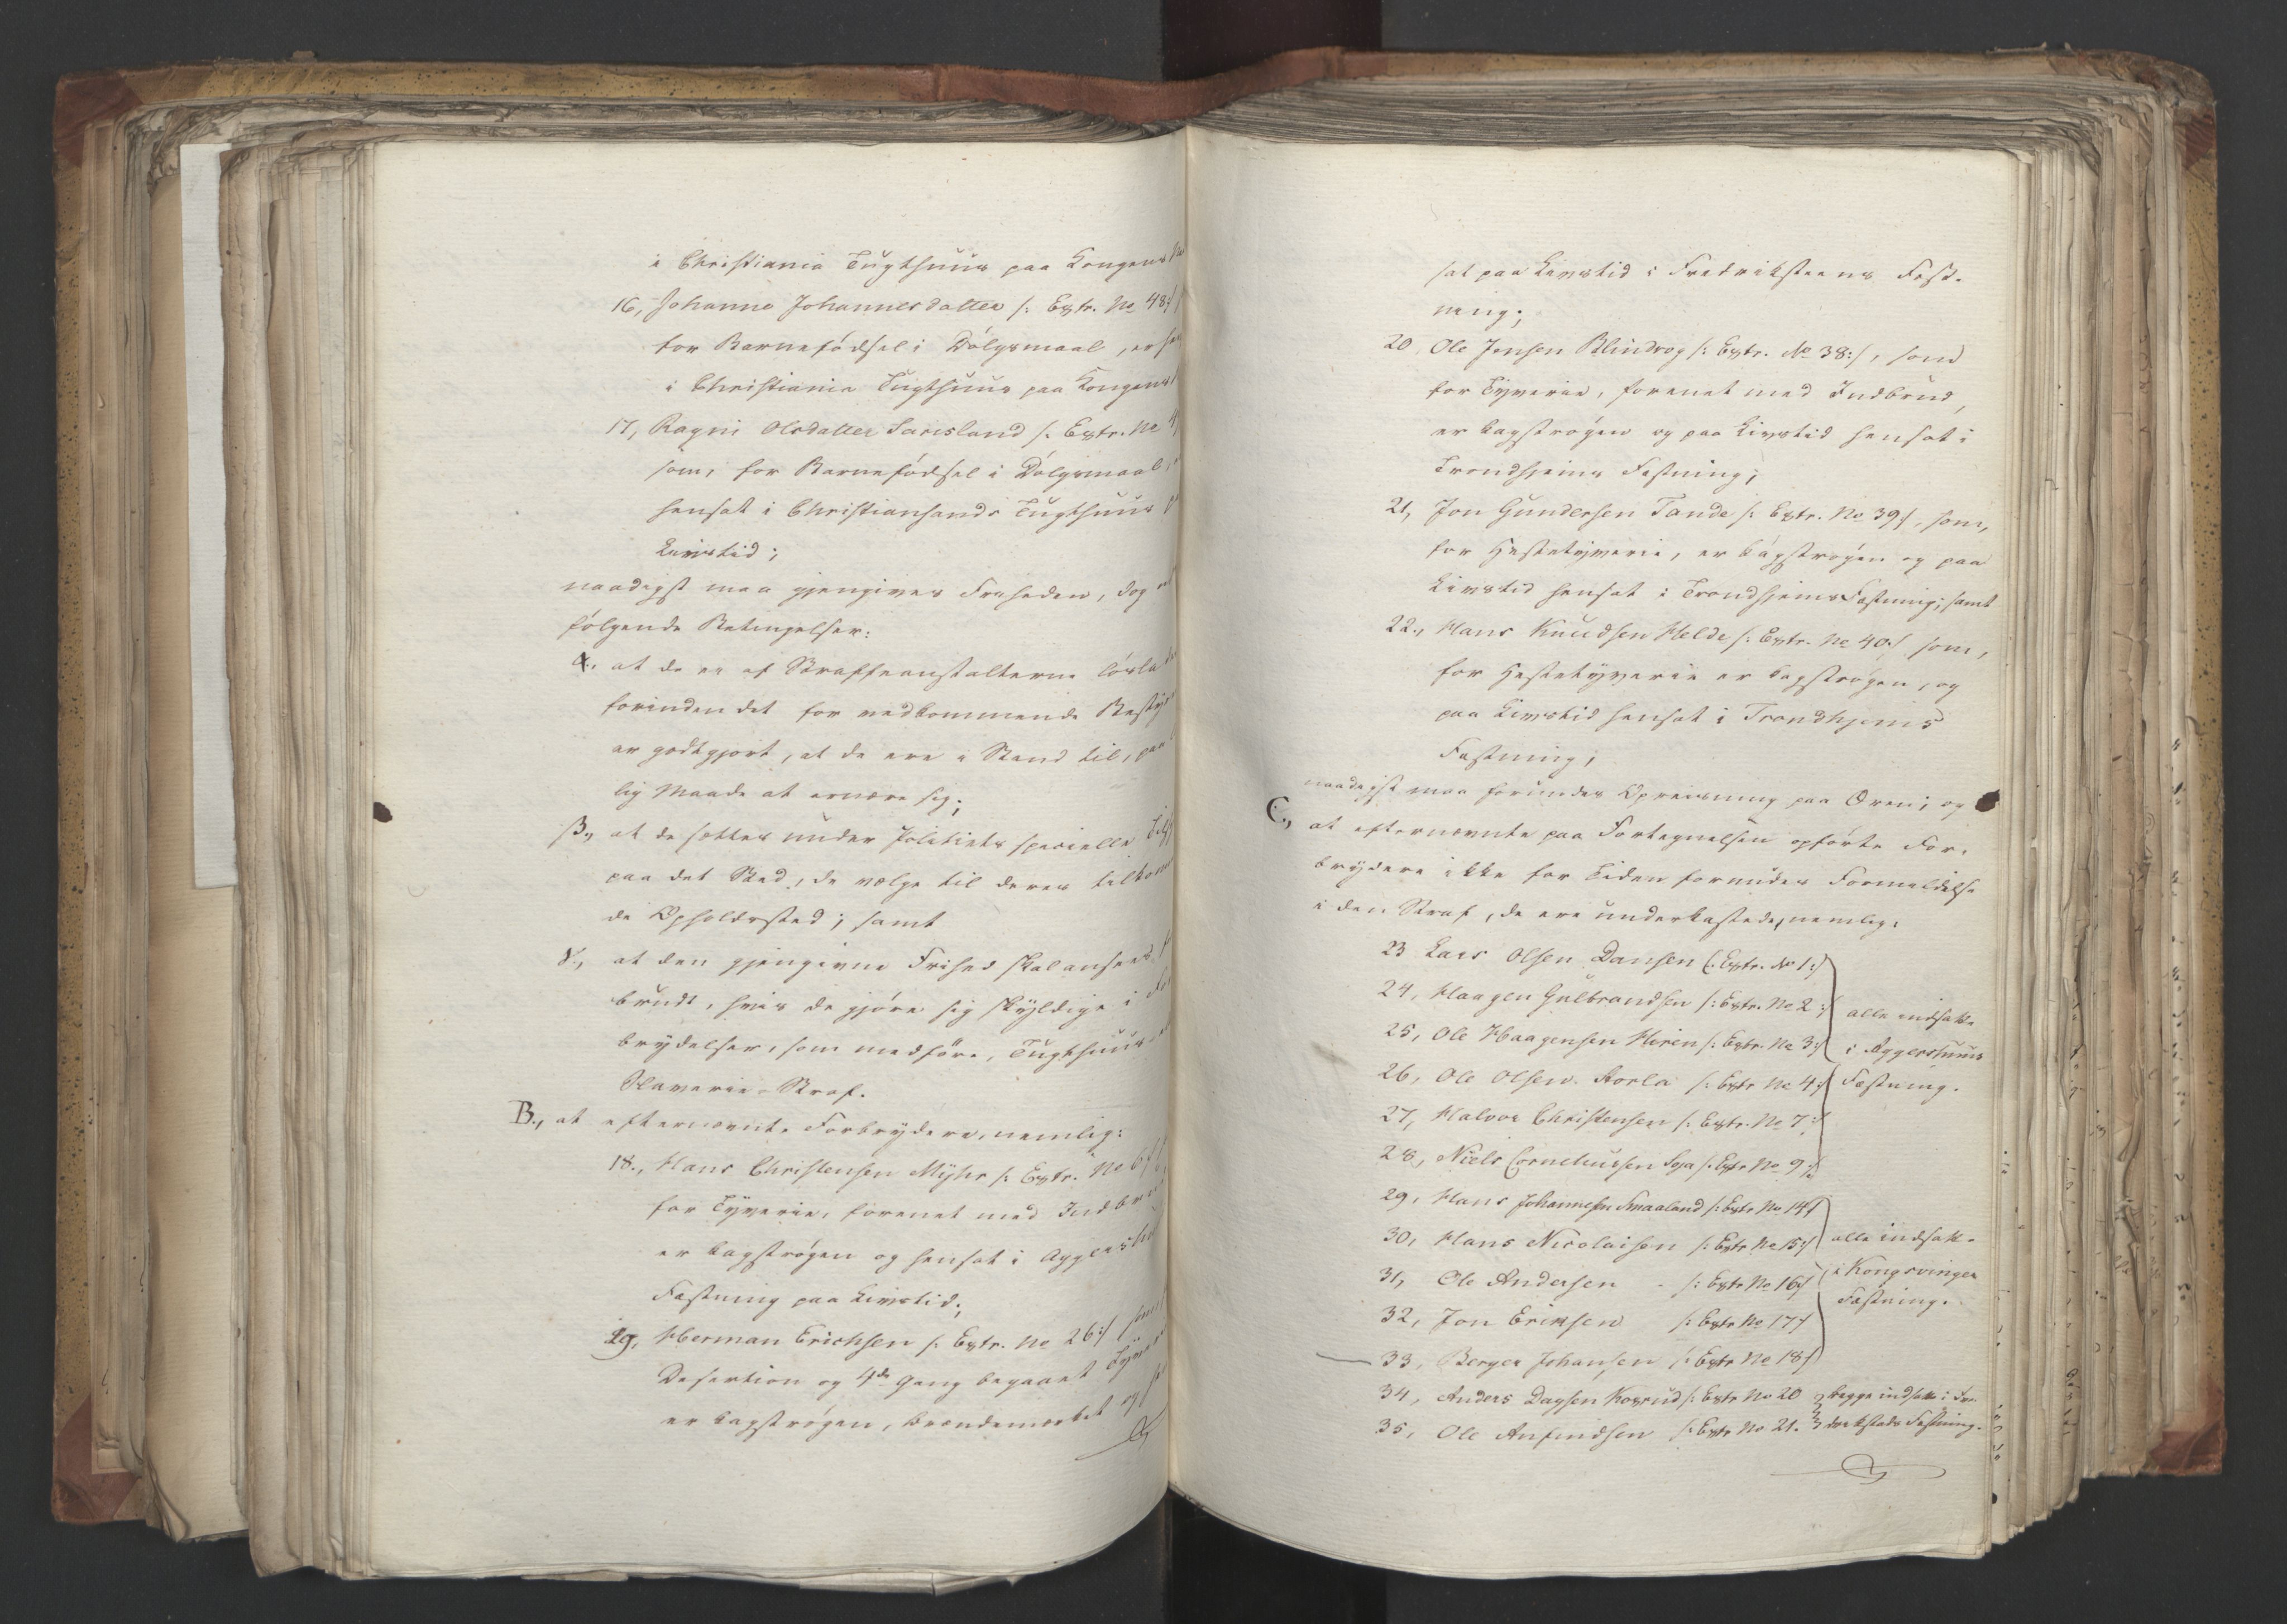 i Christiania Tugthuus paa Kongens
16, Johanne Johannesdatter /: Extr. No 48:/
for Barnefødsel i Dølgsmaal, er
i Christiania Tugthuus paa Kongens
17, Ragni Olsdatter /: Extr. No
som, for Barnefødsel i Dølgsmaal,
hensat i Christiansands Tugthuus
Livstid;
naadigst maa gjengives Friheden, dog
følgende Betingelser:
α., at de ei af Straffeanstalterne løslades
forinden det for vedkommende
er godtgjort, at de ere i Stand til, paa
lig Maade at ernære sig;
β., at de sættes under Politiets specielle
paa det Sted, de vælge til deres
de Opholdssted; samt
γ., at den gjengivne Frihed skal ansees
brudt, hvis de gjøre sig skyldige i
brydelser, som medføre, Tugthuus
Slaverie-Straf.
B., at efternævnte Forbrydere, nemlig:
18., Hans Christensen Myhr /: Extr. No 6:/
for Tyverie, forenet med
er kagstrøgen og hensat i
Fæstning paa Livstid;
19, Herman Erichsen /: Extr. No 26:/
Desertion og 4de Gang begaaet
er kagstrøgen, brændemærket og
sat paa Livstid i Fredriksteens Fæst-
ning;
20, Ole Jensen Blindrog /: Extr. No 38:/, som
for Tyverie, forenet med Indbrud,
er kagstrøgen og paa Livstid hensat i
Trondhjems Fæstning;
21, Jon Gundersen Tande /: Extr. No 39:/, som,
for Hestetyverie, er kagstrøgen og paa
Livstid hensat i Trondhjems Fæstning; samt
22., Hans Knudsen Helde /: Extr. No 40:/ som,
for Hestetyverie er kagstrøgen, og
paa Livstid hensat i Trondhjems
Fæstning;
naadigst maa forundes Opreisning paa Æren; og
C., at efternævnte paa Fortegnelsen opførte For-
brydere ikke for Tiden forundes Formildelse
i den Straf, de ere underkastede, nemlig:
23 Lars Olsen Dansen /: Extr. No 1:/
24, Haagen Gulbrandsen /: Extr. No 2:/ alle indsatte
25, Ole Haagensen Hiren /: Extr. No 3:/ i Aggershuus
26, Ole Olsen Korla /: Extr No 4:/ Fæstning.
27, Halvor Christensen /: Extr. No 7:/
28, Niels Corneliussen Foja /: Extr No 9:/
29, Hans Johannesen Smaaland /: Extr No 14:/
30, Hans Nicolaisen /: Extr No 15:/ alle indsatte
31, Ole Andersen - /: Extr No 16:/ i Kongsvinger
32, Jon Eriksen /: Extr No 17:/ Fæstning.
33, Berger Johansen /: Extr No 18:/
34, Anders Dagsen Kosrud /: Extr No 20 begge indsatte i Fre-
35, Ole Anfindsen /: Extr No 21. drikstads Fæstning.